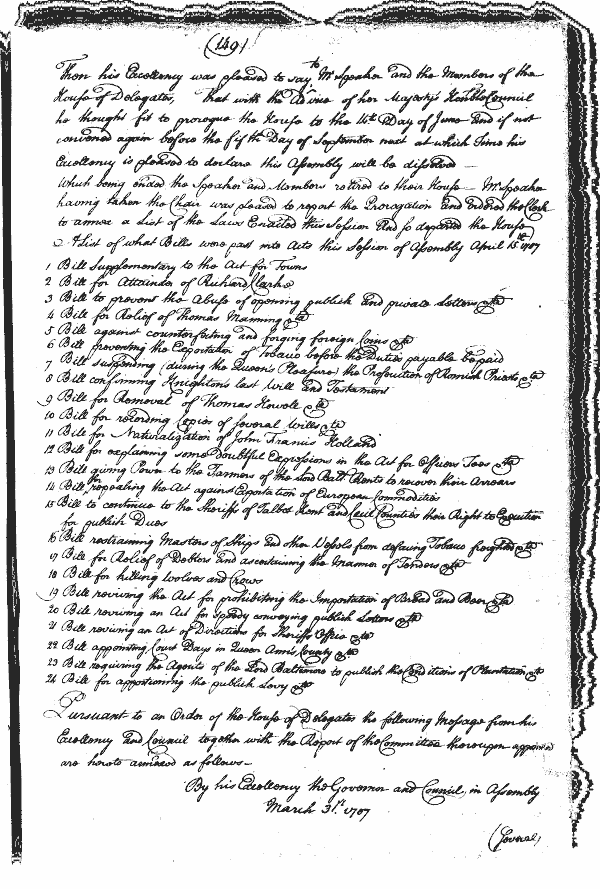 (149)
Then his Excellency was pleased to say to Mr Speaker and the Members of the
House of Delegates, That with the Advice of her Majestys Honble Council
he thought fit to prorogue the House to the 14th Day of June And if not
convened again before the fifth Day of September next at which Time his
Excellency is pleased to declare this Assembly will be dissolved —
Which being ended the Speaker and Members retired to their House — Mr Speaker
having taken the Chair was pleased to report the Prorogation and ordered the Clerk
to annex a List of the Laws Enacted this Session And so departed the House
A List of what Bills were past into Acts this Session of Assembly April 15th 1707
1 Bill Supplementary to the Act for Towns
2 Bill for Attainder of Richard Clarke
3 Bill to prevent the Abuse of opening publick and private Letters &ta
4 Bill for Relief of Thomas Manning &ta
5 Bill against counterfeiting and forging foreign Coins &ta
6 Bill preventing the Exportation of Tobacco before the Duties payable be paid
7 Bill suspending (during the Queen's Pleasure) the Prosecution of Romish Priests &ta
8 Bill confirming Knighton's last Will and Testament
9 Bill for Removal of Thomas Howell &ta
10 Bill for recording Copies of several Wills &ta
11 Bill for Naturalization of John Francis Holland
12 Bill for explaining some Doubtful Expressions in the Act for Officers Fees &ta
13 Bill giving Power to the Farmers of the Lord Balt Rents to recover their Arrears
14 Bill for repealing the Act against Exportation of European Commodities
15 Bill to continue to the Sheriffs of Talbot Kent and Cecil Counties their Right to Execution
for publick Dues
16 Bill restraining Masters of Ships and other Vessels from defacing Tobacco freighted &ta
17 Bill for Relief of Debtors and ascertaining the Manner of Tenders &ta
18 Bill for killing Wolves and Crows
19 Bill reviving the Act for prohibiting the Importation of Bread and Beer &ta
20 Bill reviving an Act for speedy conveying publick Letters &ta
21 Bill reviving an Act of Directions for Sheriffs Office &ta
22 Bill appointing Court Days in Queen Anns County &ta
23 Bill requiring the Agents of the Lord Baltimore to publish the Conditions of Plantation &ta
24 Bill for apportioning the publick Levy &ta
Pursuant to an Order of the House of Delegates the following Message from his
Excellency and Council together with the Report of the Committee thereupon appointed
are hereto annexed as follows —
By his Excellency the Governor and Council in Assembly
March 31st 1707
(Several)